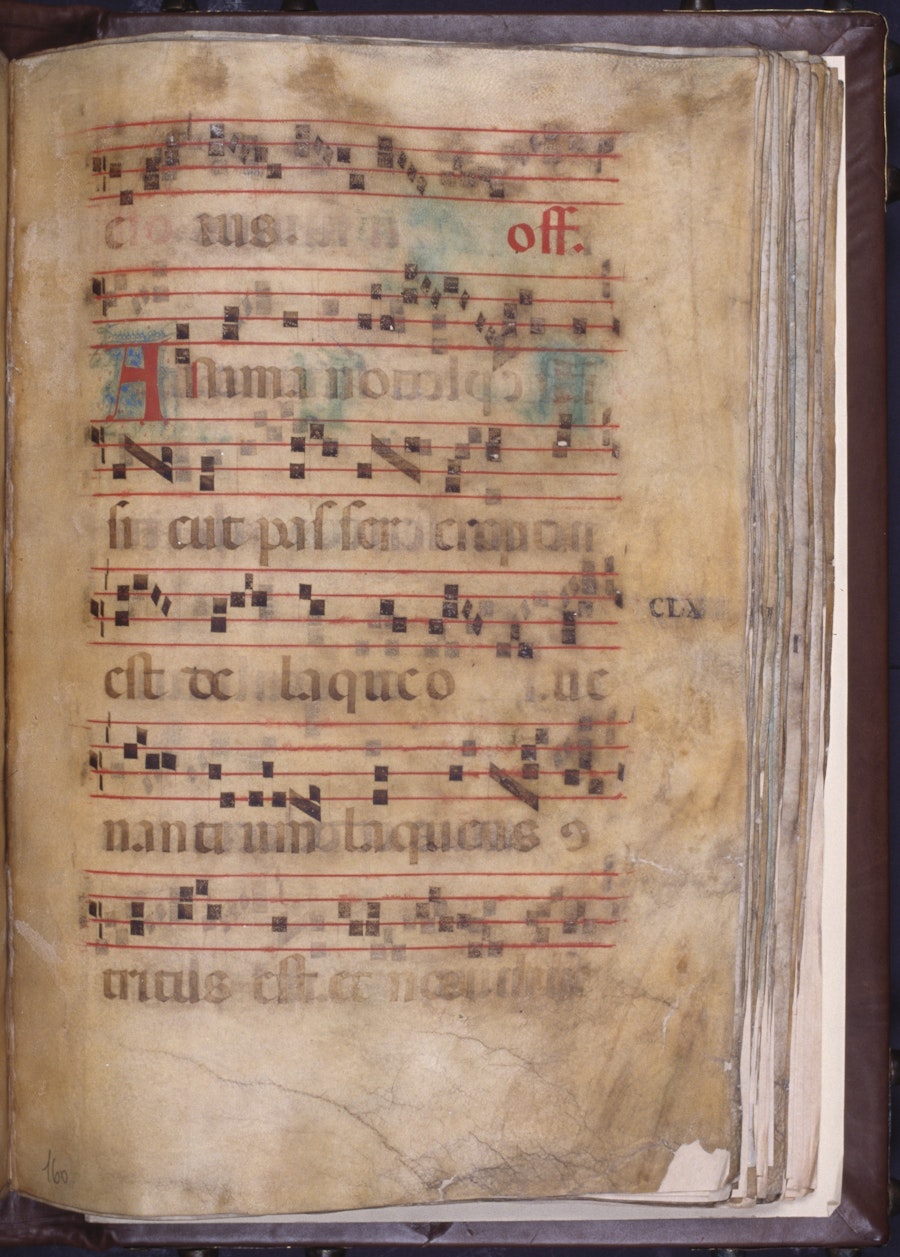 eius. off.
Anima nostra
sicut passer erepta
est de laqueo ve
nantium laqueus 9
tritus est. et nos
CLX
160